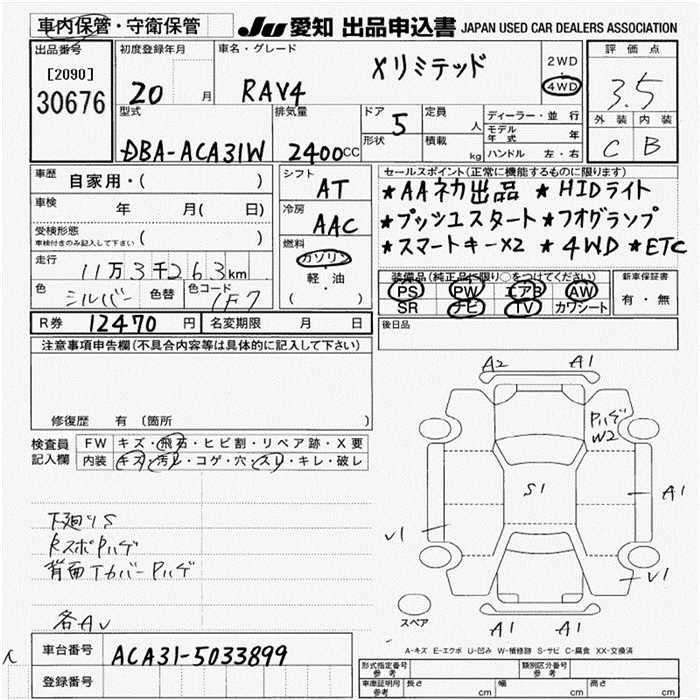 車内保管・守衛保管
JU 愛知 出品申込書 JAPAN USED CAR DEALERS ASSOCIATION
出品番号 初度登録年月 車名・グレード 評価点
[2090]
30676
20 月
RAV4 Xリミテッド
2WD
4WD
3.5
外装 内装
C B
型式 排気量 ドア 定員 ディーラー・並行
DBA-ACA31W 2400cc 5 人
モデル年式 年
形状 積載 kg ハンドル 左・右
車歴 自家用・( )
車検 年 月( 日)
受検形態
車検付きのみ記入して下さい ( )
走行 11万3千263km
色 シルバー 色替 色コード 1F7
シフト AT
冷房 AAC
燃料 ガソリン
軽・油
( )
セールスポイント(正常に機能するものに限ります)
★AAネカ出品 ★HIDライト
★プッシュスタート★フォグランプ
★スマートキー×2 ★4WD ★ETC
装備品(純正品に限り○をつけてください) 新車保証書
PS PW エアB AW 有・無
SR ナビ TV カワシート
R券 12470 円 名変期限 月 日
後日品
注意事項申告欄(不具合内容等は具体的に記入して下さい)
修復歴 有 〔箇所 〕
検査員記入欄
FW キズ・飛石・ヒビ割・リペア跡・X要
内装 キズ・汚レ・コゲ・穴・スレ・キレ・破レ
下廻りS
RスポPハゲ
背面TカバーPハゲ
各AU
A2 A1
Pハゲ
W2
S1
A1
U1
U1
A1 A1
スペア
A-キズ E-エクボ U-凹み W-補修跡 S-サビ C-腐食 XX-交換済
車台番号 ACA31-5033899
登録番号
形式指定番号 参考 類別区分番号 参考
車庫証明用 参考 長さ cm 幅 cm 高さ cm